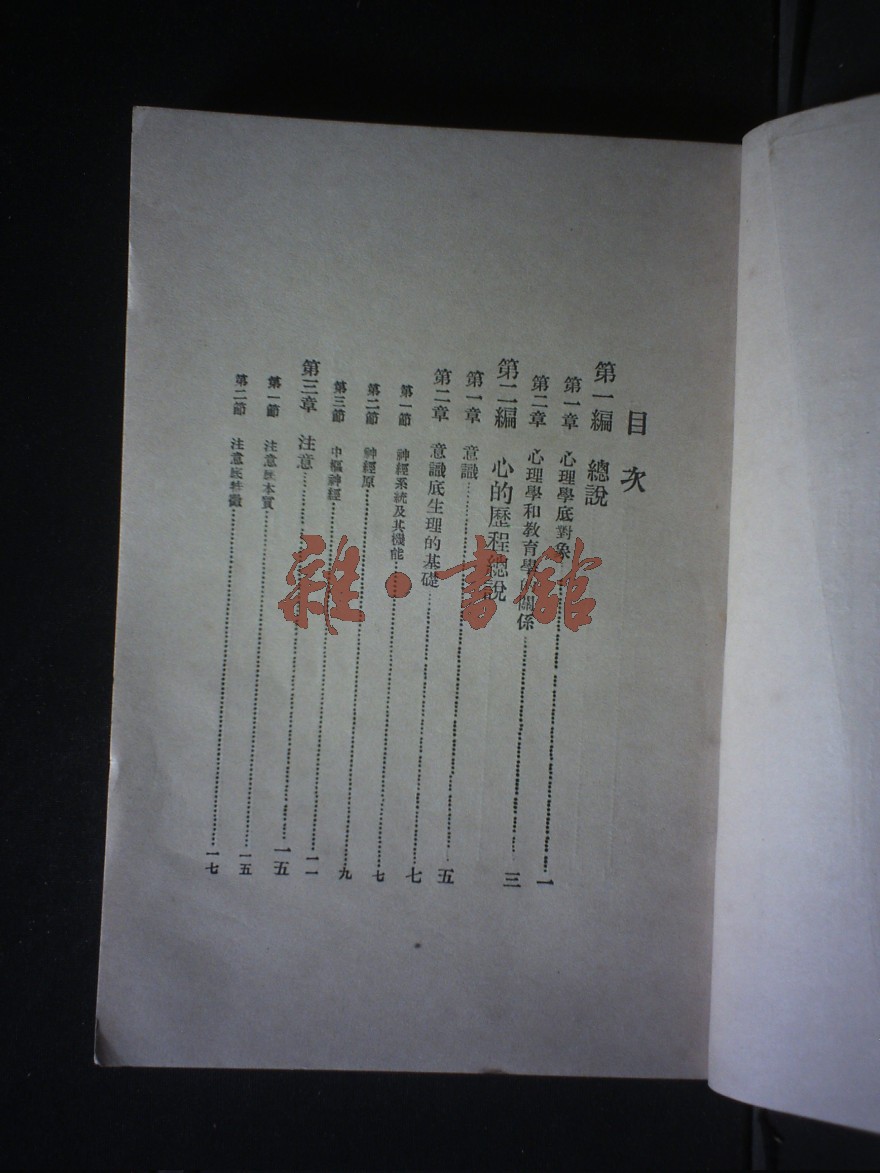 目次
第一編 總說
第一章 心理學底對象……一
第二章 心理學和教育學關係……三
第二編 心的歷程總說
第一章 意識……五
第二章 意識底生理的基礎……七
第一節 神經系統及其機能……七
第二節 神經原……九
第三節 中樞神經……一一
第三章 注意……一五
第一節 注意底本質……一五
第二節 注意底特徵……一七
雜·書館